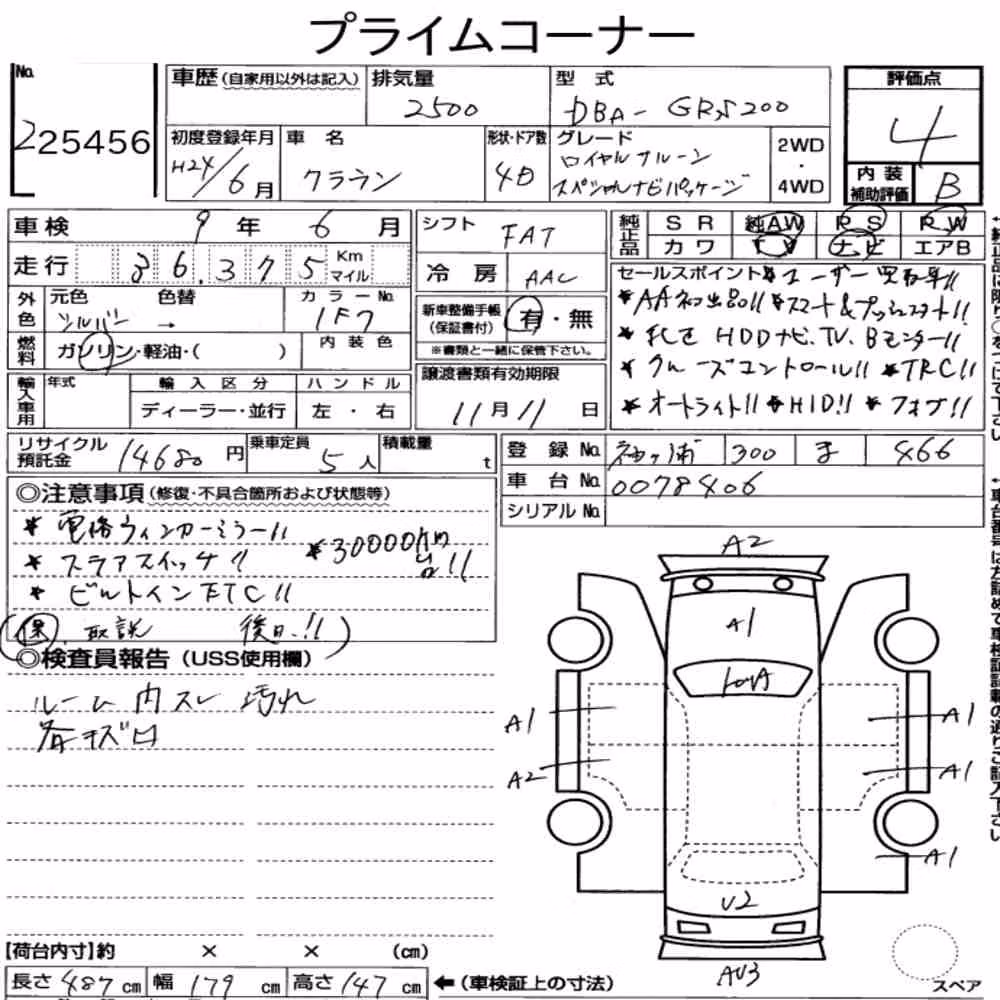 プライムコーナー
No.
225456
車歴 (自家用以外は記入)
排気量
2500
型 式
DBA- GRS200
評価点
4
初度登録年月
H24/6月
車 名
クラウン
形状・ドア数
4D
グレード
ロイヤルサルーン
スペシャルナビパッケージ
2WD
・
4WD
内 装
補助評価
B
車検 9年 6月
走行 36,375 Km マイル
シフト
FAT
冷 房
AAC
純正品
S R 純AW P S P W
カ ワ T V ナ ビ エアB
外色
元色 色替 カラーNo.
シルバー → 1F7
燃料
ガソリン・軽油・( )
内 装 色
新車整備手帳
(保証書付)
有・無
※書類と一緒に保管下さい。
セールスポイント ★ユーザー買取車!!
★AA初出品!! ★スマート&プッシュスタート!!
★純正 HDDナビ、TV、Bモニター!!
★クルーズコントロール!! ★TRC!!
★オートライト!! ★HID!! ★フォグ!!
輸入車用
年式
輸 入 区 分
ハ ン ド ル
ディーラー・並行
左 ・ 右
譲渡書類有効期限
11月11日
リサイクル
預託金
14680円
乗車定員
5人
積載量
t
登 録 No. 袖ヶ浦 300 ま 466
車 台 No. 0078406
シリアル No.
◎注意事項 (修復・不具合箇所および状態等)
★電格ウィンカーミラー!!
★ステアスイッチ!! ★30000km台!!
★ビルトインETC!!
(保、取説 後日、!!)
◎検査員報告 (USS使用欄)
ルーム内スレ 汚れ
各キズ凹
A2
A1
A1
A2
A1
A1
A1
U2
AU3
[荷台内寸]約 × × (cm)
長さ 487 cm 幅 179 cm 高さ 147 cm ←(車検証上の寸法)
スペア